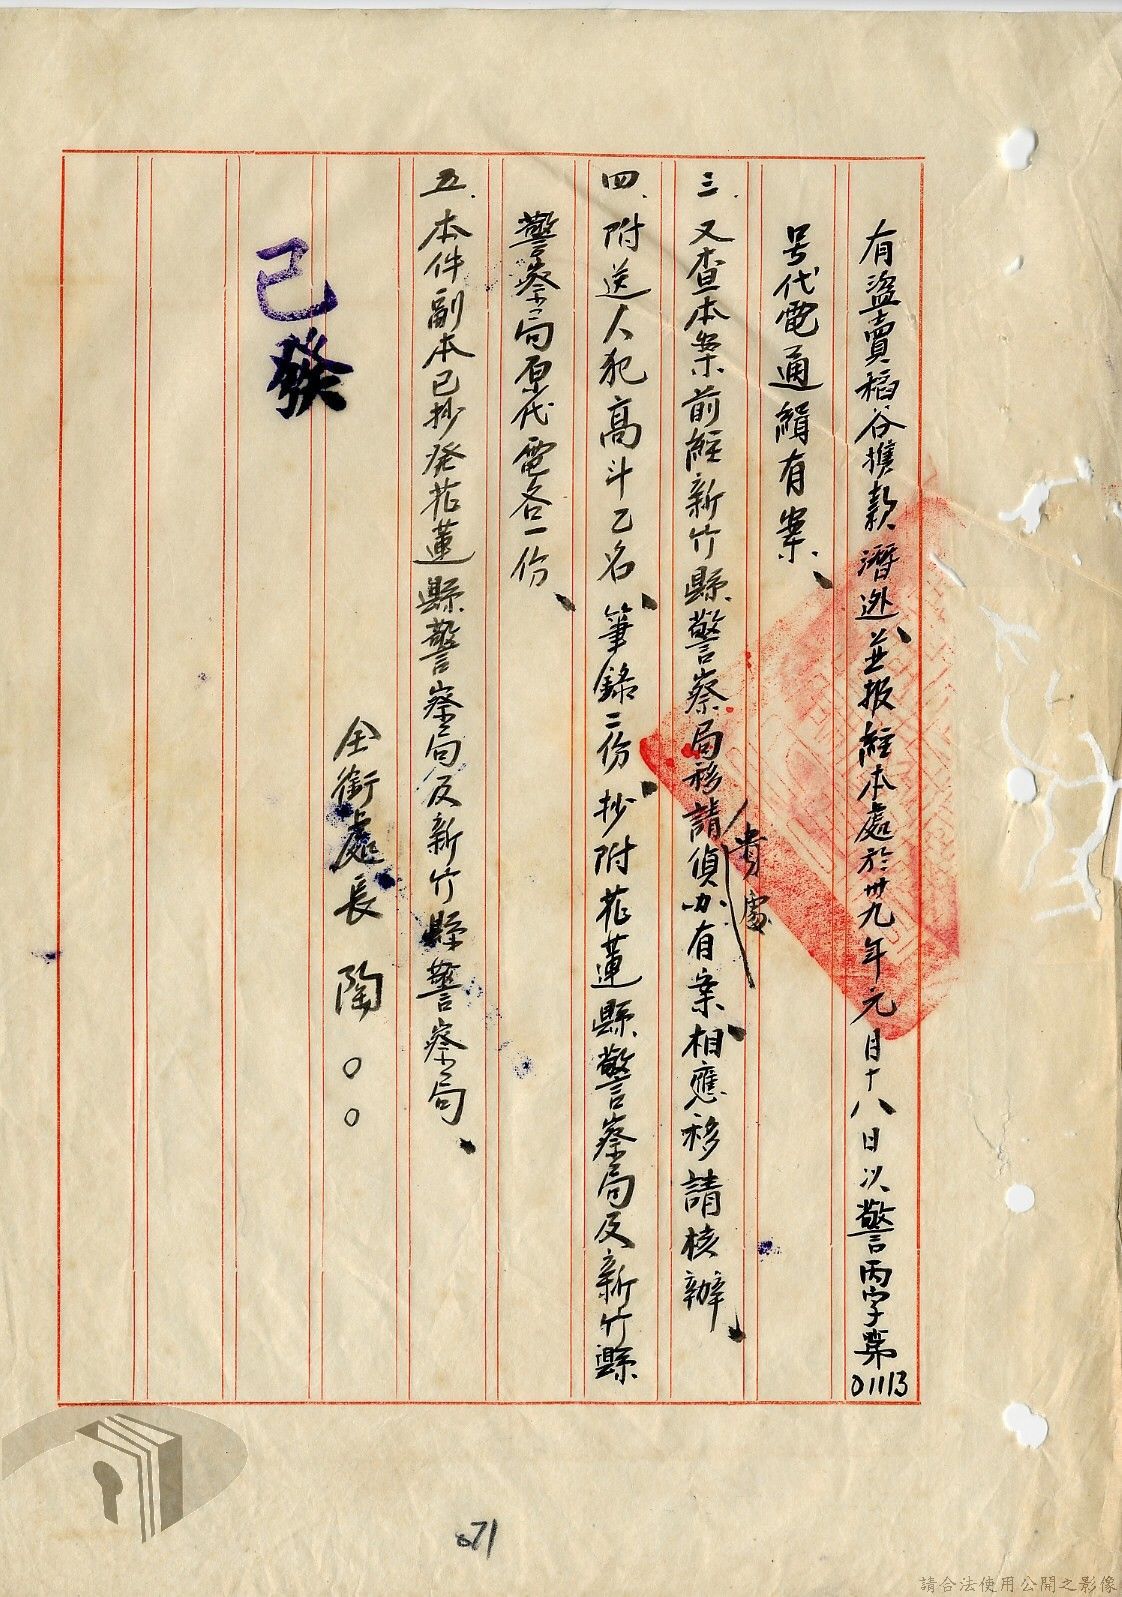 有盜賣稻谷携款潛逃並报經本處於卅九年元月十八日以警丙字第01113
号代電通緝有案、
三、又查本案前經新竹縣警察局移請貴處偵办有案相應移請核辦、
四、附送人犯高斗乙名、筆錄二份、抄附花蓮縣警察局及新竹縣
警察局原代電各一份、
五、本件副本已抄発花蓮縣警察局及新竹縣警察局、
全銜處長 陶○○
已發
071
請合法使用公開之影像